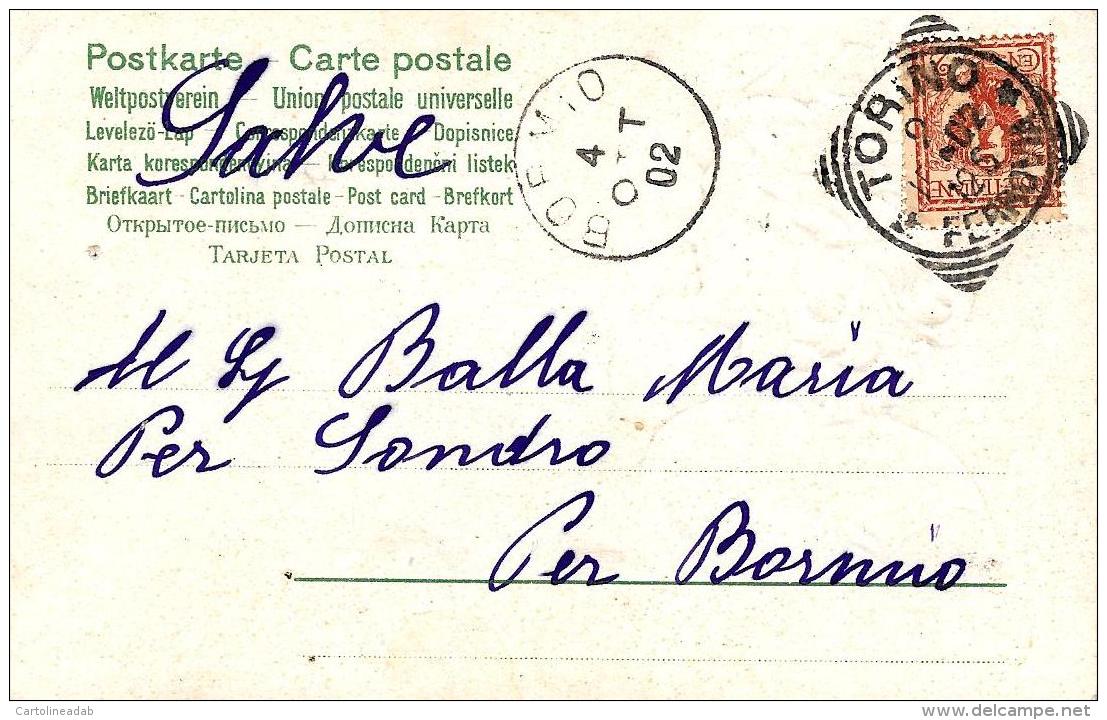 Postkarte — Carte postale
Weltpostverein — Union postale universelle
Levelező-Lap — Correspondenzkarte — Dopisnice
Karta korespondencyjna — Korespondenční listek
Briefkaart - Cartolina postale - Post card - Brefkort
Открытое-письмо — Дописна Карта
TARJETA POSTAL
Salve
BORMIO
4
OTT
02
TORINO
FERROVIA
Balla Maria
Per Sondro
Per Bormio
Cartolineadab
delcampe.net